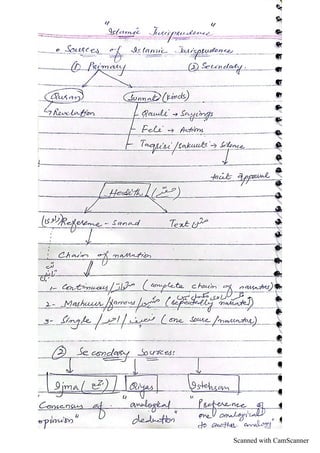 "Islamic Jurisprudence"
• Sources of Islamic Jurisprudence
① Primary ② Secondary.
Quran Sunnat (kinds)
↳ Revelation - Qauli → Sayings
- Feli → Actions
- Taqriri/sakuuti → Silence
tacit approval
Hadith (حدیث)
Reference - Sanad Text متن
Chain of narration
1- Continuous/متواتر (complete chain of narrators)
2- Mashuur/famous/مشہور (repeatedly narrated)
3- Single / احد / (one source/narrator)
② Secondary Sources:
Ijma (اجماع) Qiyas Istehsan
"Consensus of "analogical "Preference of
opinion" deduction" one analogical
to another analogy"
Scanned with CamScanner